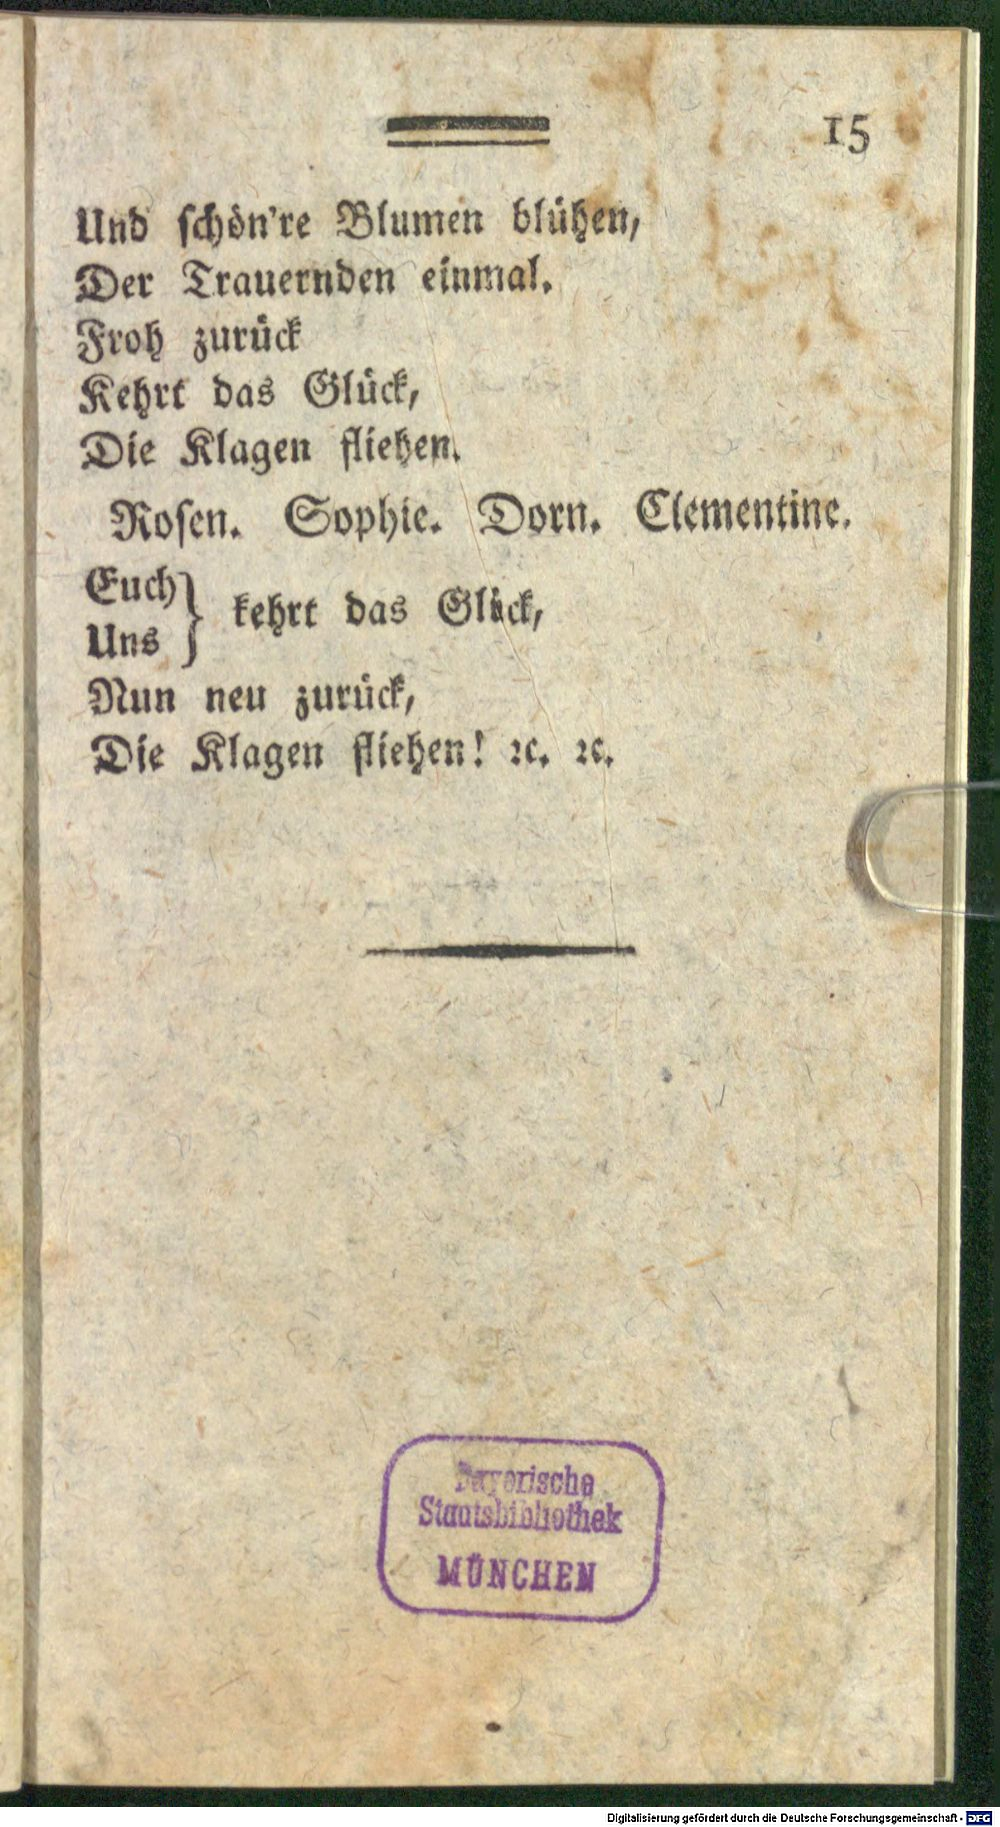 15
Und ſchön're Blumen blühen,
Der Trauernden einmal.
Froh zurück
Kehrt das Glück,
Die Klagen fliehen.
Roſen. Sophie. Dorn. Clementine.
Euch
Uns } kehrt das Glück,
Nun neu zurück,
Die Klagen fliehen! ꝛc. ꝛc.
Bayerische
Staatsbibliothek
MÜNCHEN
Digitalisierung gefördert durch die Deutsche Forschungsgemeinschaft - DFG